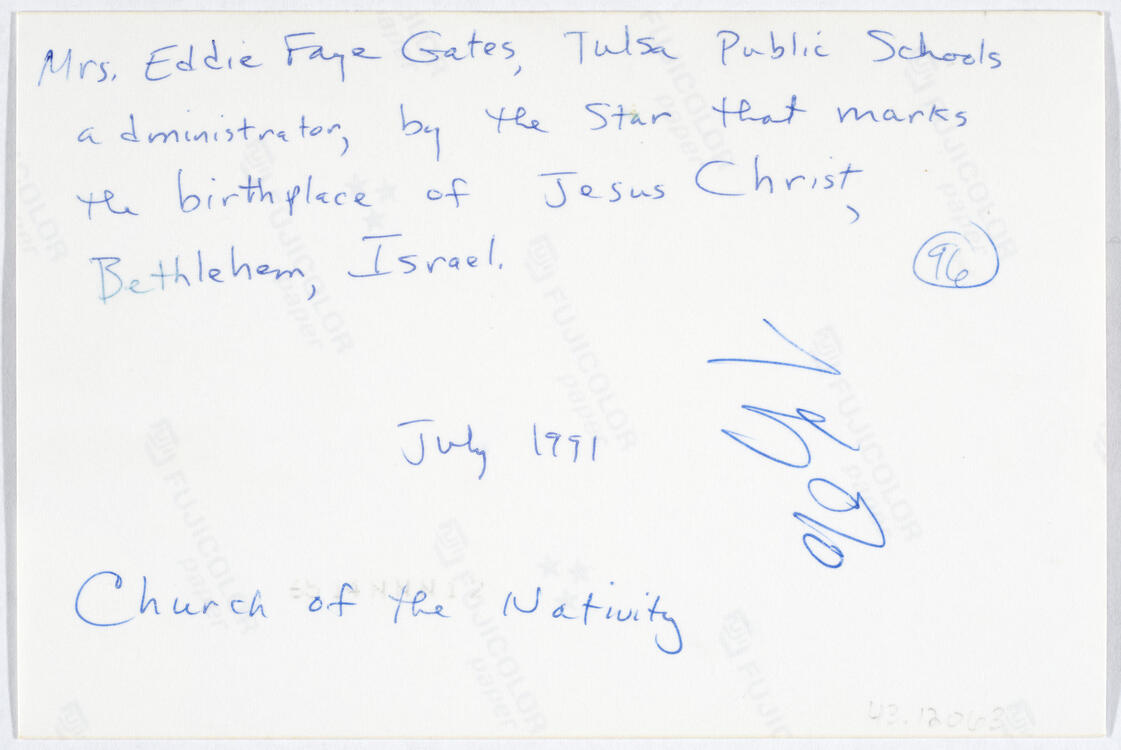 Mrs. Eddie Faye Gates, Tulsa Public Schools
administrator, by the Star that marks
the birthplace of Jesus Christ,
Bethlehem, Israel.
96
July 1991
Church of the Nativity
FUJICOLOR
paper